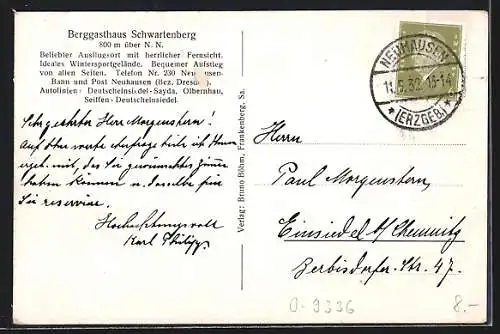 Berggasthaus Schwartenberg
800 m über N. N.
Beliebter Ausflugsort mit herrlicher Fernsicht.
Ideales Wintersportgelände. Bequemer Aufstieg
von allen Seiten. Telefon Nr. 230 Neuhausen-
Bahn und Post Neuhausen (Bez. Dresden).
Autolinien: Deutscheinsiedel-Sayda, Olbernhau,
Seiffen-Deutscheinsiedel.
Sehr geehrter Herr Morgenstern!
Auf Ihre werte Anfrage teile ich Ihnen
ergel. mit, das Sie gewünschtes Zimmer
haben können u. dasselbe für
Sie reserviere.
Hochachtungsvoll
Karl Philipp
Verlag: Bruno Böhm, Frankenberg, Sa.
NEUHAUSEN
11.6.32. 13-14
* (ERZGEB.) *
Herrn
Paul Morgenstern,
Einsiedel b/ Chemnitz
Zerbisdorfer-Str. 47.
0-9336
8.-